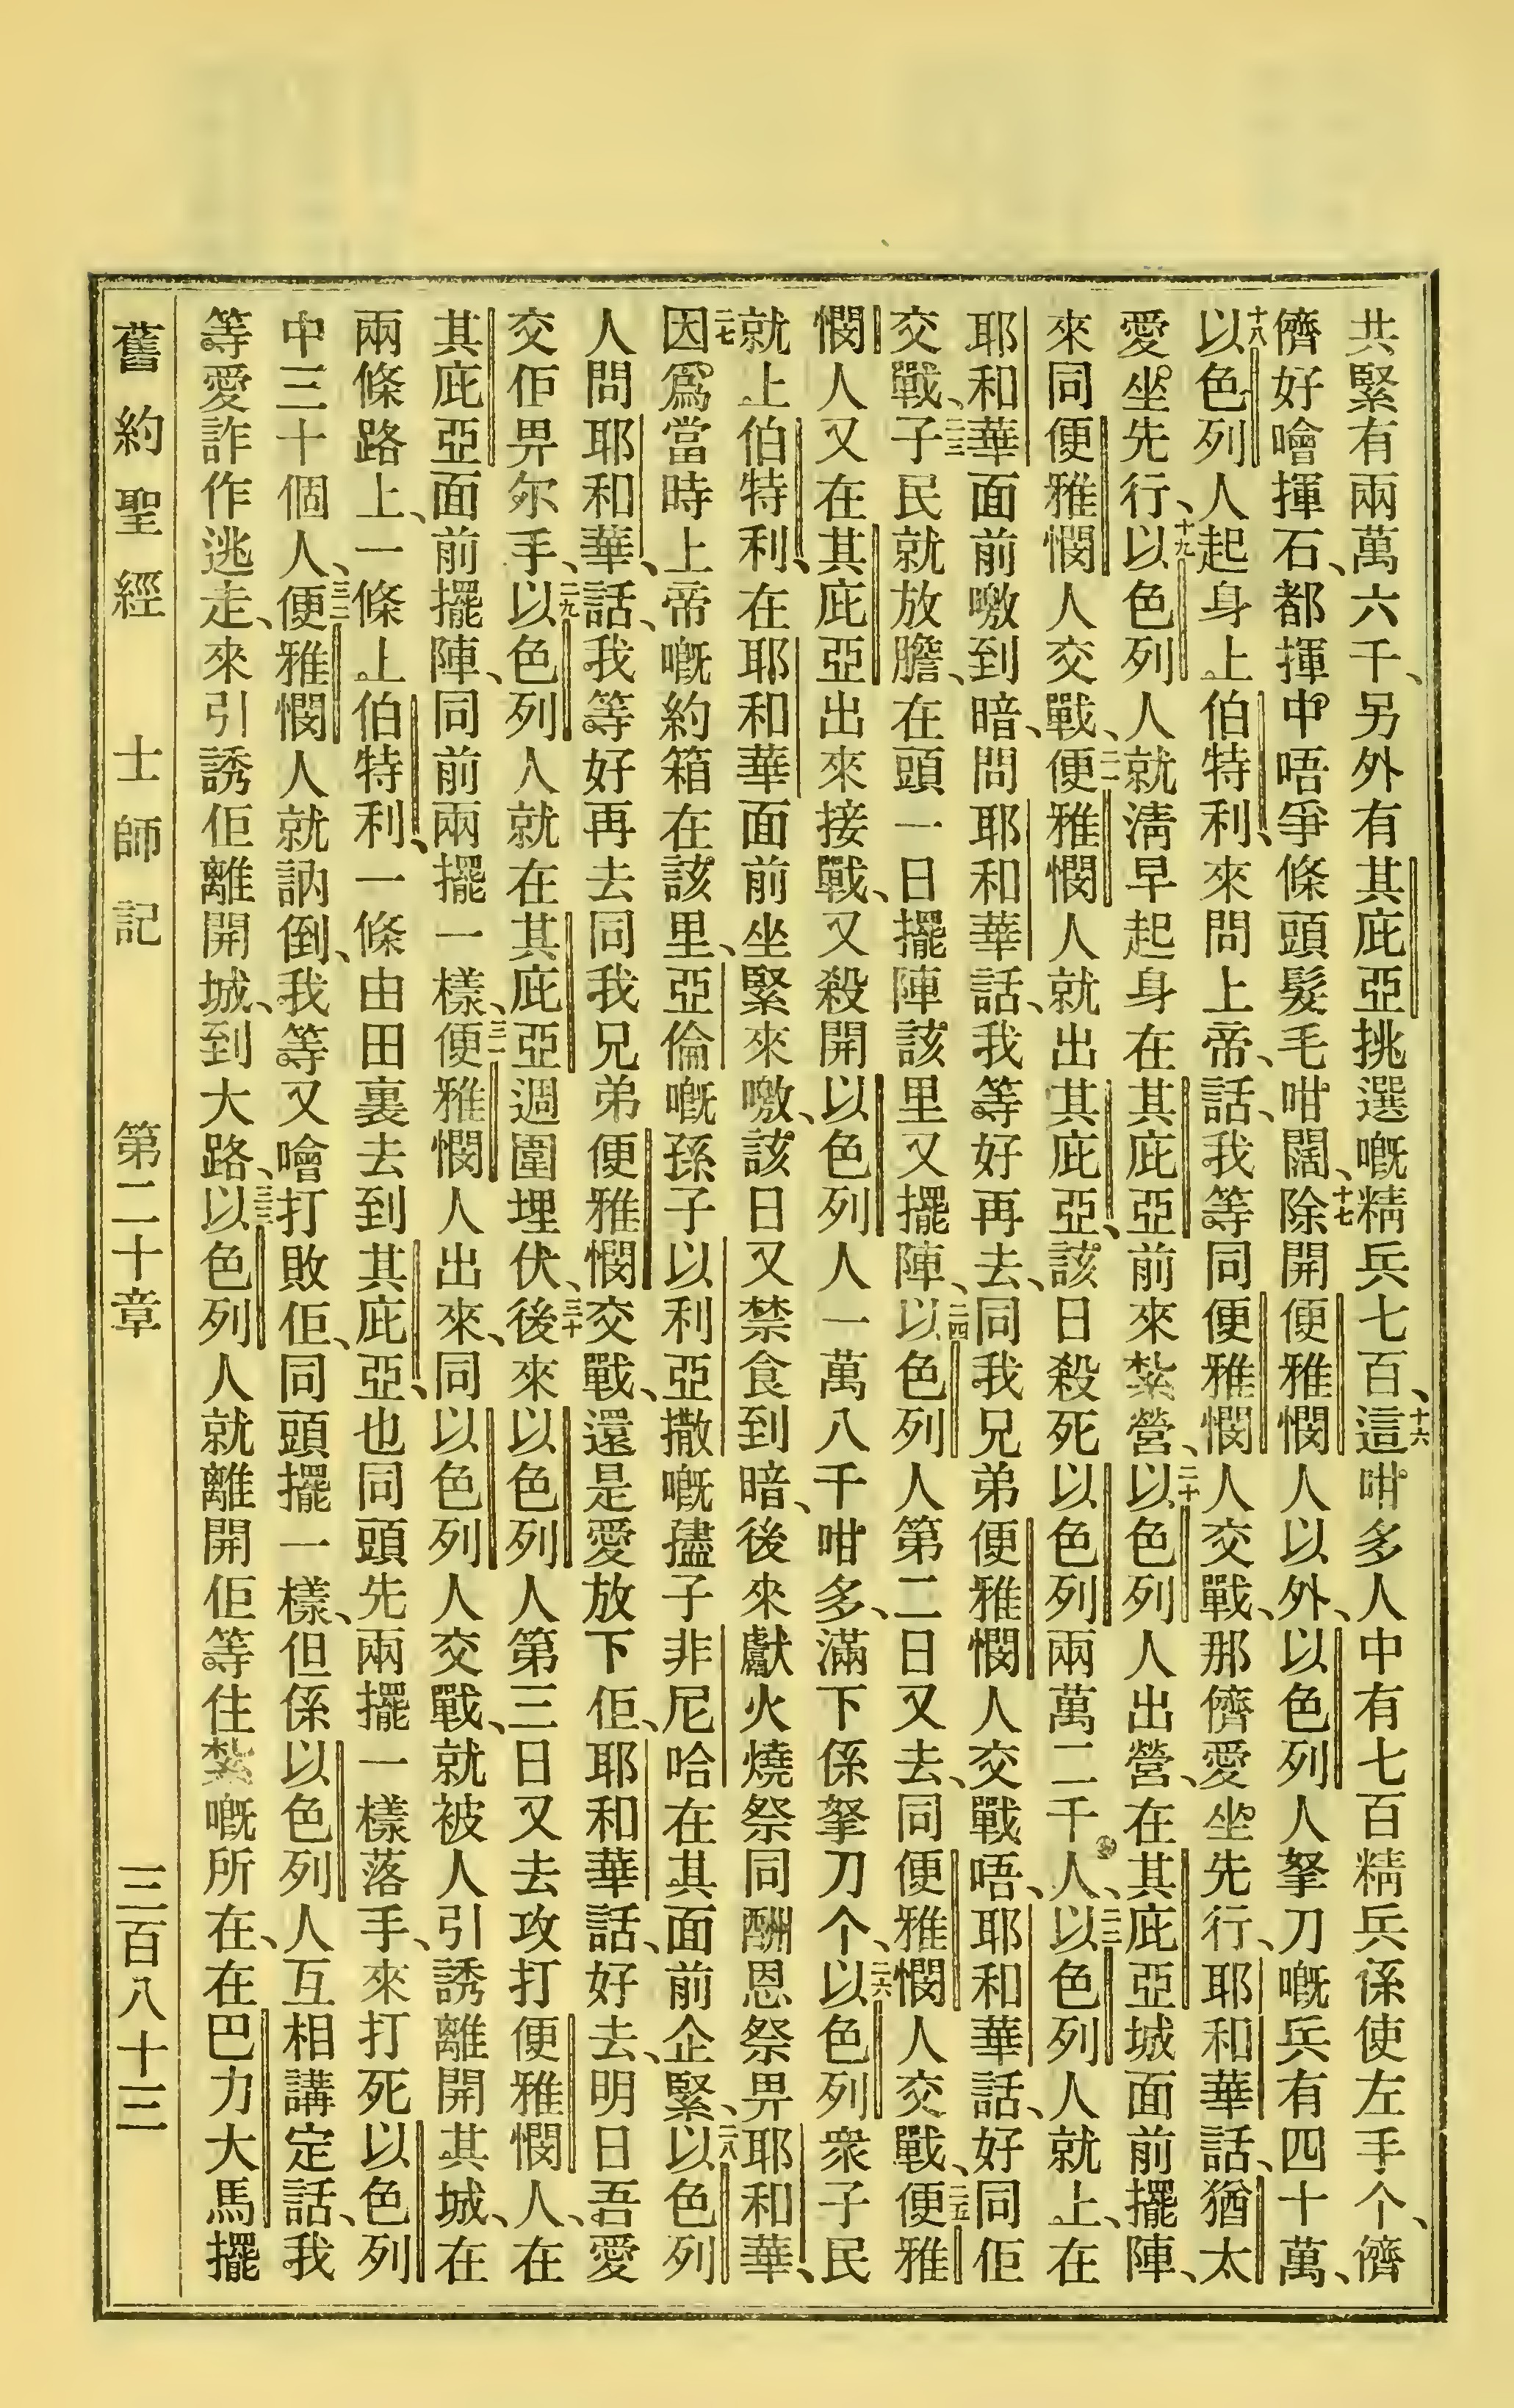 共緊有兩萬六千、另外有其庇亞挑選嘅精兵七百、十六這咁多人中有七百精兵係使左手个、儕
儕好噲揮石、都揮中唔爭條頭髮毛咁闊、十七除開便雅憫人以外、以色列人拏刀嘅兵有四十萬、
十八以色列人起身上伯特利、來問上帝、話、我等同便雅憫人交戰、那儕愛坐先行、耶和華話、猶太
愛坐先行、十九以色列人就淸早起身在其庇亞前來紮營、二十以色列人出營、在其庇亞城面前擺陣、
來同便雅憫人交戰、二一便雅憫人就出其庇亞、該日殺死以色列兩萬二千人、二二以色列人就上、在
耶和華面前噭到暗、問耶和華話、我等好再去、同我兄弟便雅憫人交戰唔、耶和華話、好同佢
交戰、二三子民就放膽、在頭一日擺陣該里又擺陣、二四以色列人第二日又去、同便雅憫人交戰、二五便雅
憫人又在其庇亞出來接戰、又殺開以色列人一萬八千咁多、滿下係拏刀个、二六以色列衆子民
就上伯特利、在耶和華面前坐緊來噭、該日又禁食到暗、後來獻火燒祭同酬恩祭畀耶和華、
二七因爲當時上帝嘅約箱在該里、亞倫嘅孫子以利亞撒嘅孻子非尼哈在其面前企緊、二八以色列
人問耶和華、話、我等好再去同我兄弟便雅憫交戰、還是愛放下佢、耶和華話、好去、明日吾愛
交佢畀尔手、二九以色列人就在其庇亞週圍埋伏、三十後來以色列人第三日又去攻打便雅憫人、在
其庇亞面前擺陣、同前兩擺一樣、三一便雅憫人出來、同以色列人交戰、就被人引誘離開其城、在
兩條路上、一條上伯特利、一條由田裏去到其庇亞、也同頭先兩擺一樣落手、來打死以色列
中三十個人、三二便雅憫人就訥倒、我等又噲打敗佢、同頭擺一樣、但係以色列人互相講定話、我
等愛詐作逃走、來引誘佢離開城、到大路、三三以色列人就離開佢等住紮嘅所在、在巴力大馬擺
舊約聖經　士師記　第二十章　三百八十三